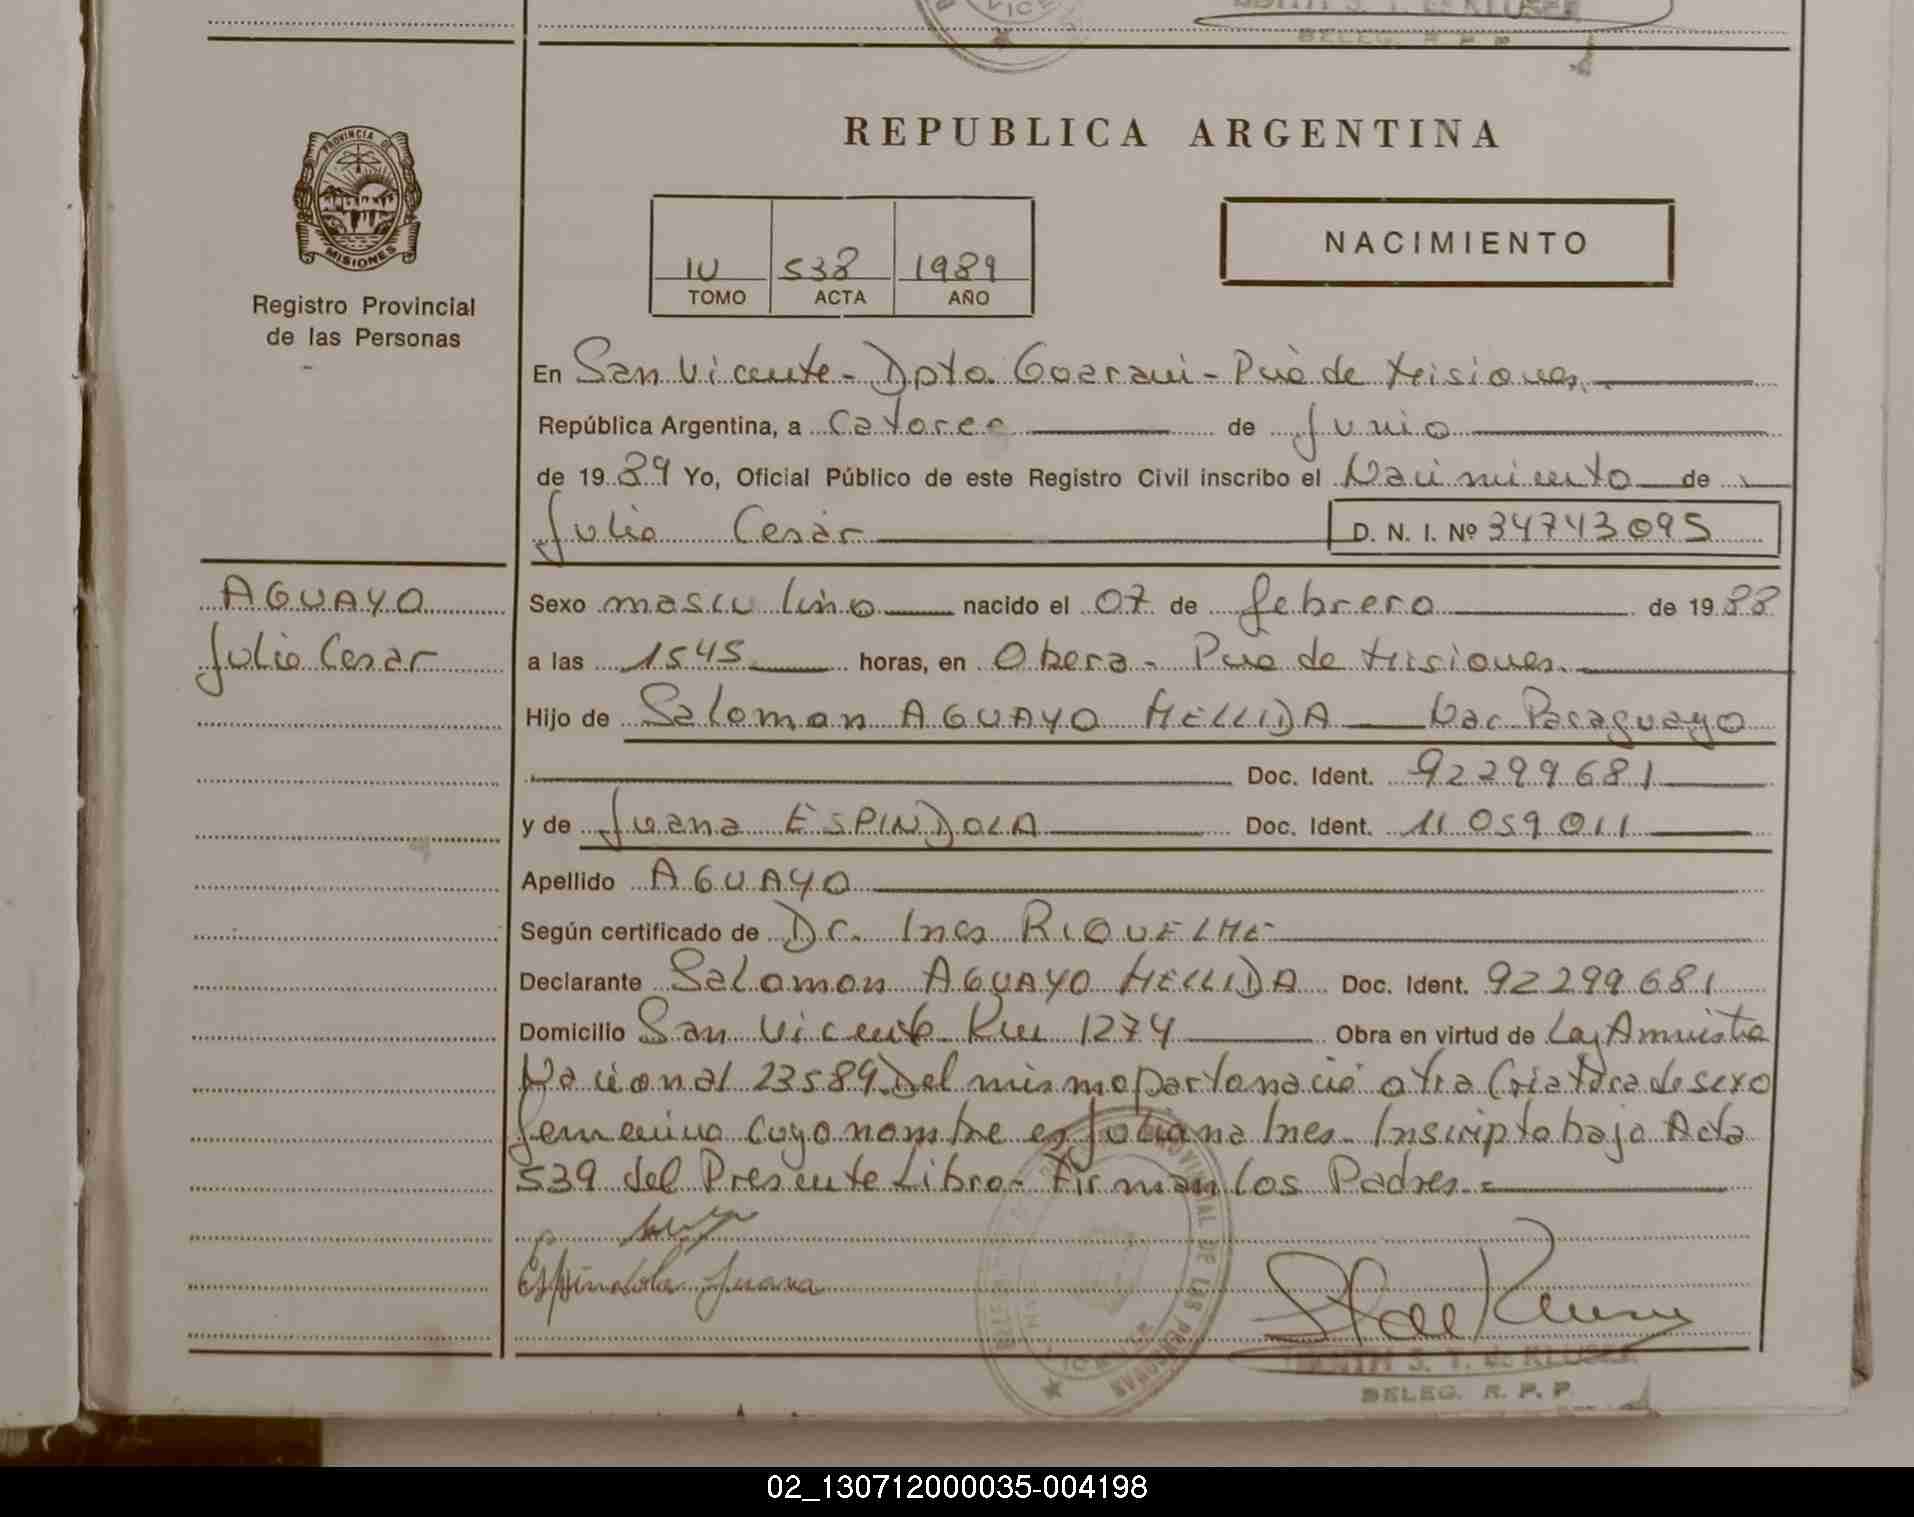 VICE
EDITH S. T. de KLUSER
DELEG. R. P. P.
PROVINCIA DE
MISIONES
Registro Provincial
de las Personas
REPUBLICA ARGENTINA
IV 538 1989
TOMO ACTA AÑO
NACIMIENTO
En San Vicente - Dpto. Guarani - Pcia de Misiones.
República Argentina, a Catorce de Junio
de 1989 Yo, Oficial Público de este Registro Civil inscribo el Nacimiento de
Julio Cesar D. N. I. Nº 34743095
AGUAYO
Julio Cesar
Sexo masculino nacido el 07 de febrero de 1988
a las 1545 horas, en Obera - Pcia de Misiones.
Hijo de Salomon AGUAYO MELLIDA Nac. Paraguayo
Doc. Ident. 92299681
y de Juana ESPINDOLA Doc. Ident. 11 059 011
Apellido AGUAYO
Según certificado de Dr. Ines RIQUELME
Declarante Salomon AGUAYO MELLIDA Doc. Ident. 92299681
Domicilio San Vicente Km 1274 Obra en virtud de Ley Amnistia
Nacional 23589. Del mismo parto nació otra Criatura de sexo
femenino cuyo nombre es Juliana Ines. Inscripto bajo Acta
539 del Presente Libro - Firman los Padres. =
Espindola Juana
PROVINCIAL DE LAS PERSONAS
EDITH S. T. de KLUSER
DELEG. R. P. P.
02_130712000035-004198